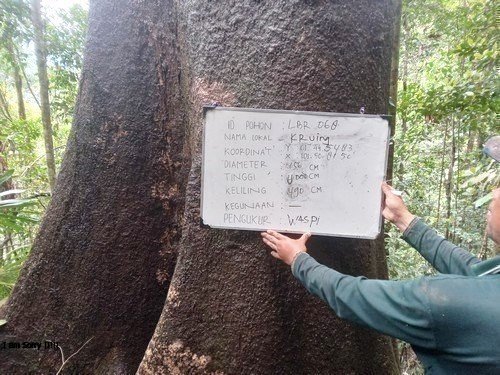 ID POHON : LBR 068
NAMA LOKAL - KRUIN
KOORDINAT : Y
X
DIAMETER : 156 CM
TINGGI : CM
KELILING : 490 CM
KEGUNAAN : —
PENGUKUR : WASPI